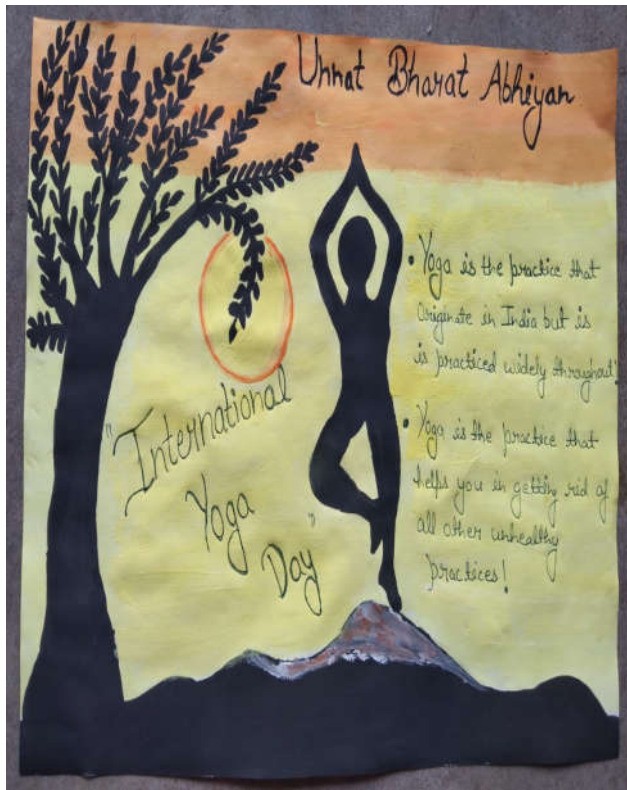 Unnat Bharat Abhiyan
"International
Yoga
Day"
• Yoga is the practice that
Originate in India but is
is practiced widely throughout!
• Yoga is the practice that
helps you in getting rid of
all other unhealthy
practices!